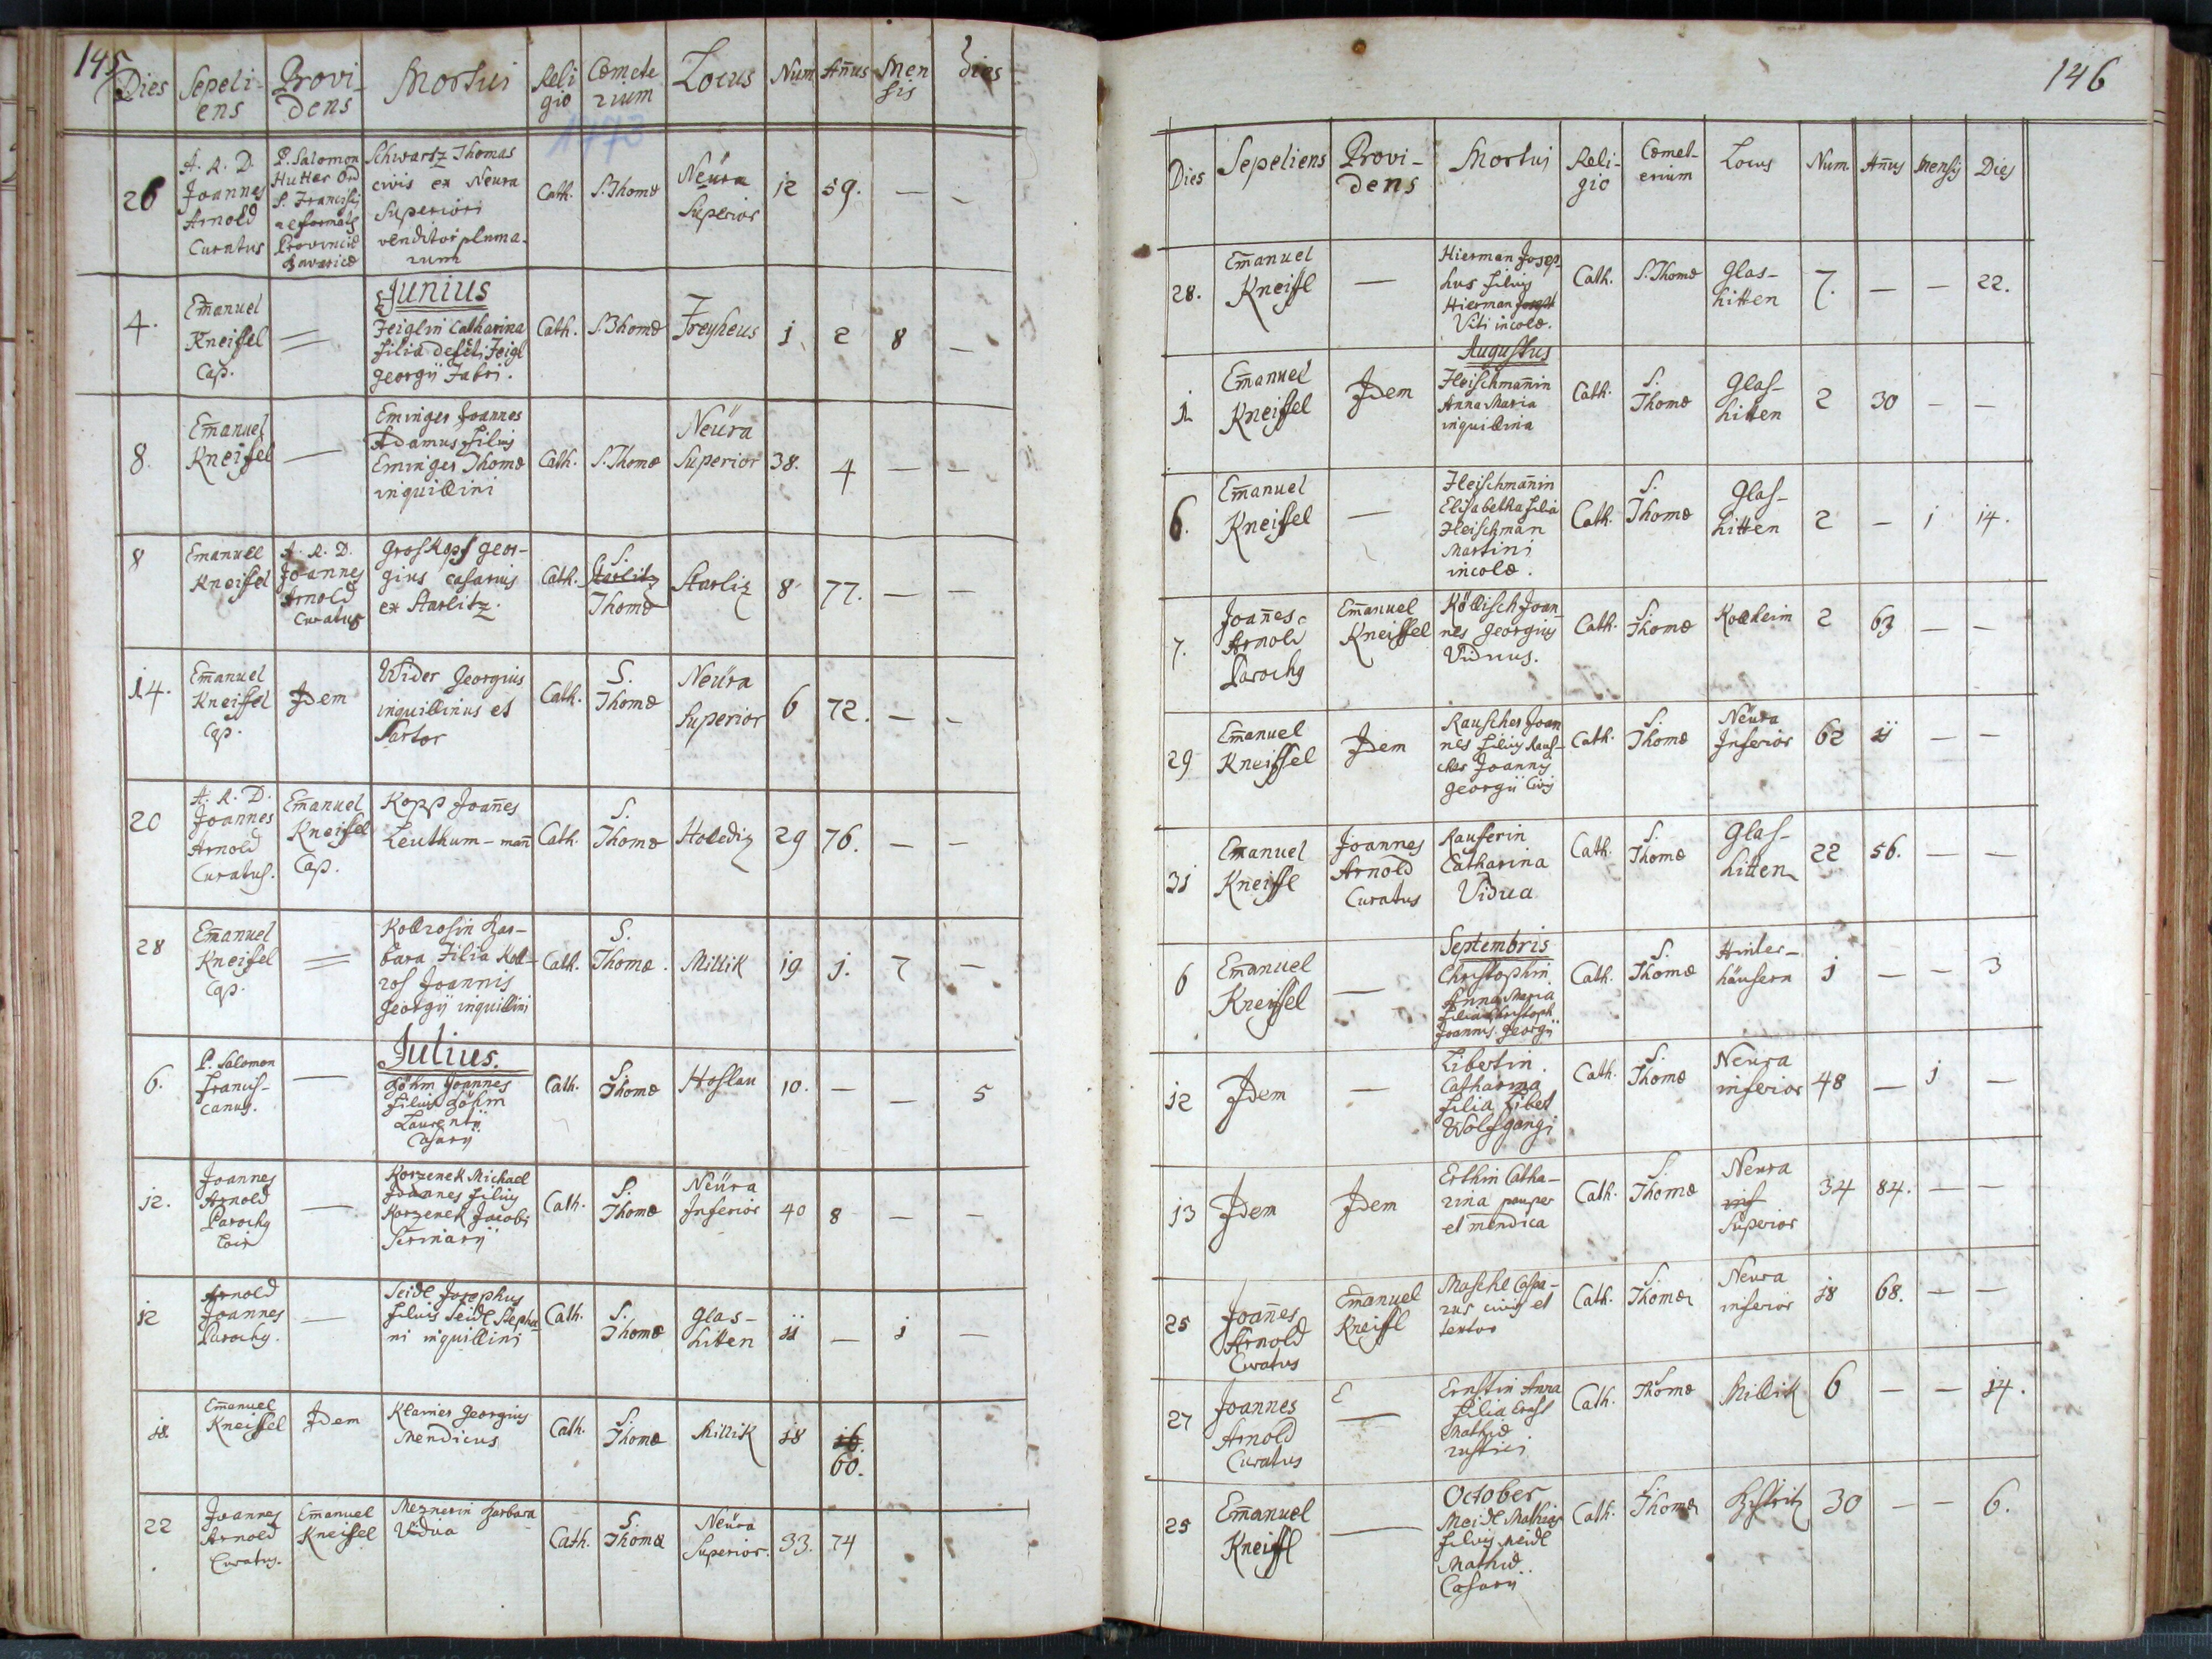 145
Dies Sepeliens Providens Mortui Religio Cœmeterium Locus Num. Añus Mensis Dies
1773
26
A. R. D.
Joannes
Arnold
Curatus
P. Salomon
Hutter Ord
S. Francisci
Reformate
Provinciæ
Bavariæ
Schwartz Thomas
civis ex Neura
Superiori
venditor pluma-
rum
Cath. S. Thomæ
Neüra
Superior
12 59. — —
Junius
4.
Em̃anuel
Kneissel
Cap.
=
Feiglin Catharina
filia defcti Feigl
Georgij Fabri.
Cath. S. Thomæ Freyheus 1 2 8 —
8.
Em̃anuel
Kneissel
—
Eminger Joannes
Adamus filius
Eminger Thomæ
inquillini
Cath. S. Thomæ
Neüra
Superior
38. 4 — —
8
Emanuel
Kneissel
A. R. D.
Joannes
Arnold
Curatus
Groskopf Geor-
gius casarius
ex Starlitz.
Cath.
S.
Starlitz
Thomæ
Starliz 8 77. — —
14.
Em̃anuel
Kneissel
Cap.
Idem
Wider Georgius
inquillinus et
Sartor
Cath.
S.
Thomæ
Neüra
Superior
6 72. — —
20
A. R. D.
Joannes
Arnold
Curatus.
Em̃anuel
Kneissel
Cap.
Kopp Joañes
Leuthum-mañ
Cath.
S.
Thomæ
Hollediz 29 76. — —
28
Em̃anuel
Kneissel
Cap.
=
Kollrosin Bar-
bara Filia Koll-
ros Joannis
Georgij inquillini
Cath.
S.
Thomæ.
Millik 19 1. 7 —
Julius.
6.
P. Salomon
Francis-
canus.
—
Böhm Joannes
filius Böhm
Laurentij
Casarij
Cath.
S.
Thomæ
Hoslau 10. — — 5
12.
Joannes
Arnold
Parochg
—
Korzenek Michael
Joannes filius
Korzenek Jacobi
Scrinarij
Cath.
S.
Thomæ
Neüra
Inferior
40 8 — —
12
Arnold
Joannes
Parochg.
—
Seidl Josephus
filius Seidl Stepha-
ni inquillini
Cath.
S.
Thomæ
Glas-
hitten
11 — 1 —
18.
Em̃anuel
Kneissel
Idem
Klamer Georgius
Mendicus
Cath.
S.
Thomæ
Millik 18
16.
60.
22
Joannes
Arnold
Curatus.
Emanuel
Kneissel
Meznerin Barbara
Vidua
Cath.
S.
Thomæ
Neüra
Superior.
33. 74
146
Dies Sepeliens Providens Mortui Religio Cœmeterium Locus Num. Añus Mensis Dies
28.
Em̃anuel
Kneissl
—
Hierman Josep-
hus filius
Hierman Joseph
Viti incolæ.
Cath. S. Thomæ
Glas-
hitten
7. — — 22.
Augustus
1
Em̃anuel
Kneissel
Idem
Fleischmañin
Anna Maria
inquillina
Cath.
S.
Thomæ
Glas-
hitten
2 30 — —
6.
Em̃anuel
Kneissel
—
Fleischmañin
Elisabetha filia
Fleischman
Martini
incolæ.
Cath.
S.
Thomæ
Glas-
hitten
2 — 1 14.
7.
Joañes
Arnold
Parochg
Em̃anuel
Kneissel
Köllisch Joan-
nes Georgius
Viduus.
Cath.
S.
Thomæ
Kollheim 2 63 — —
29
Em̃anuel
Kneissel
Idem
Rauscher Joan
nes filius Raus-
cher Joannis
Georgij Civis
Cath.
S.
Thomæ
Neüra
Inferior
62 11 — —
31
Emanuel
Kneissl
Joannes
Arnold
Curatus
Rauserin
Catharina
Vidua
Cath.
S.
Thomæ
Glas-
hitten
22 56. — —
Septembris
6
Emanuel
Kneissel
—
Christophin
Anna Maria
filia Christoph
Joannis Georgij
Cath.
S.
Thomæ
Hinter-
häusern
1 — — 3
12
Idem
—
Libertin
Catharina
filia Libert
Wolfgangi
Cath.
S.
Thomæ
Neura
inferior
48 — 1 —
13
Idem
Idem
Erthin Catha-
rina pauper
et mendica
Cath.
S.
Thomæ
Neura
inf
Superior
34 84. — —
25
Joañes
Arnold
Curatus
Em̃anuel
Kneissl
Maschl Caspa-
rus civis et
textor
Cath.
S.
Thomæ
Neura
inferior
18 68. — —
27
Joannes
Arnold
Curatus
E
—
Ernstin Anna
filia Ernst
Mathiæ
rustici
Cath.
S.
Thomæ
Millik 6 — — 14.
October
25
Emanuel
Kneissl
—
Meidl Mathias
filius Meidl
Mathiæ
Casarij
Cath.
S.
Thomæ
Bistritz 30 — — 6.